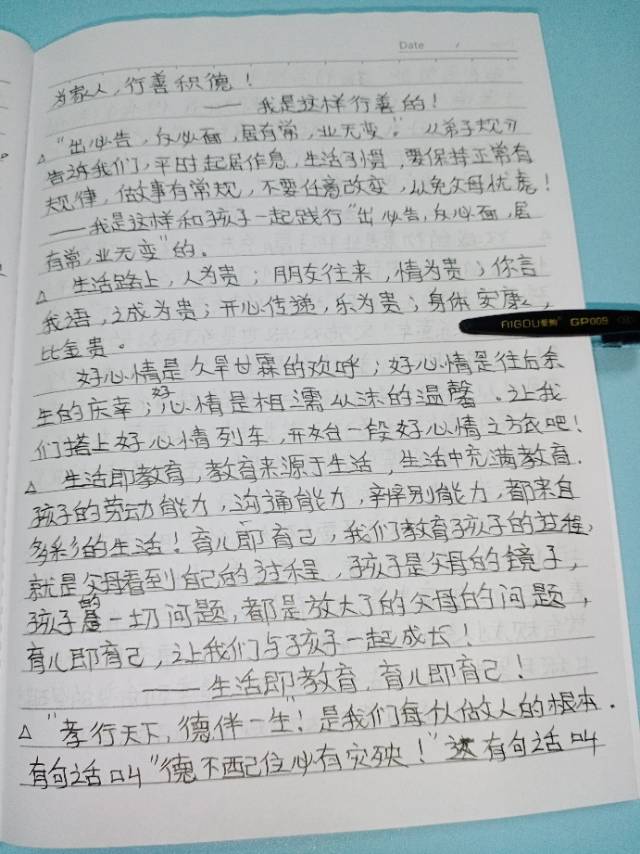 Date /
为家人，行善积德！
—— 我是这样行善的！
△ "出必告，反必面，居有常，业无变。" 《弟子规》
告诉我们，平时起居作息，生活习惯，要保持正常有
规律，做事有常规，不要任意改变，以免父母忧虑！
——我是这样和孩子一起践行"出必告，反必面，居
有常，业无变"的。
△ 生活路上，人为贵；朋友往来，情为贵；你言
我语，诚为贵；开心传递，乐为贵；身体安康，
比金贵。
好心情是久旱甘霖的欢呼；好心情是往后余
生的庆幸；好心情是相濡以沫的温馨。让我
们搭上好心情列车，开始一段好心情之旅吧！
△ 生活即教育，教育来源于生活，生活中充满教育.
孩子的劳动能力，沟通能力，辨别能力，都来自
多彩的生活！育儿即育己，我们教育孩子的过程，
就是父母看到自己的过程，孩子是父母的镜子，
孩子的一切问题，都是放大了的父母的问题，
育儿即育己，让我们与孩子一起成长！
—— 生活即教育，育儿即育己！
△ "孝行天下，德伴一生"！是我们每位做人的根本.
有句话叫"德不配位必有灾殃！" 有句话叫
AIGOU GP009